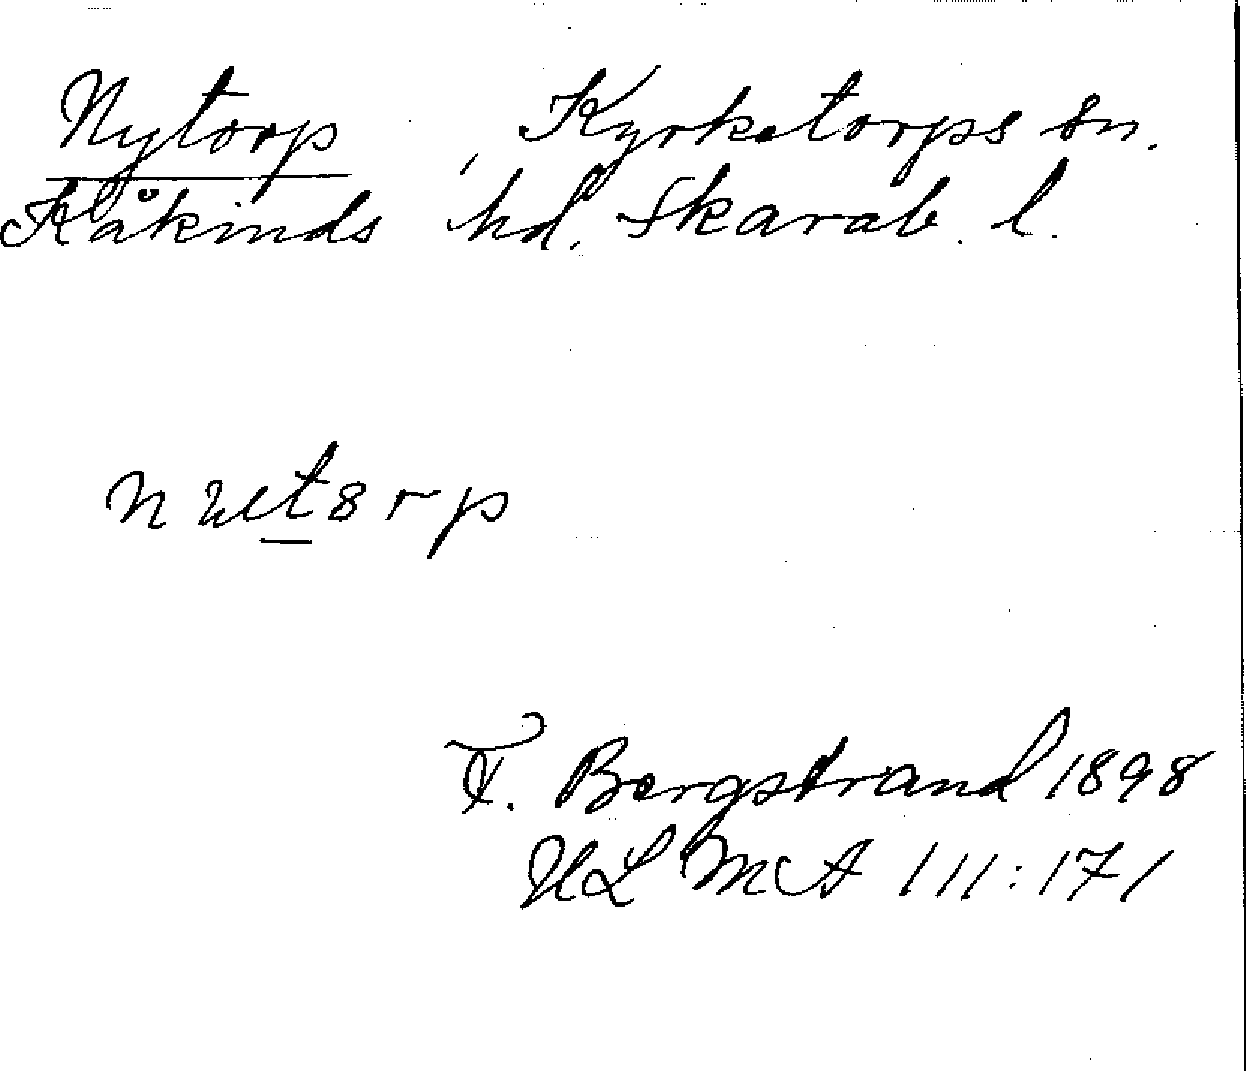 Nytorp, Kyrketorps sn.
Kåkinds hd. Skarab. l.
T. Bergstrand 1898
ULMA 111:171